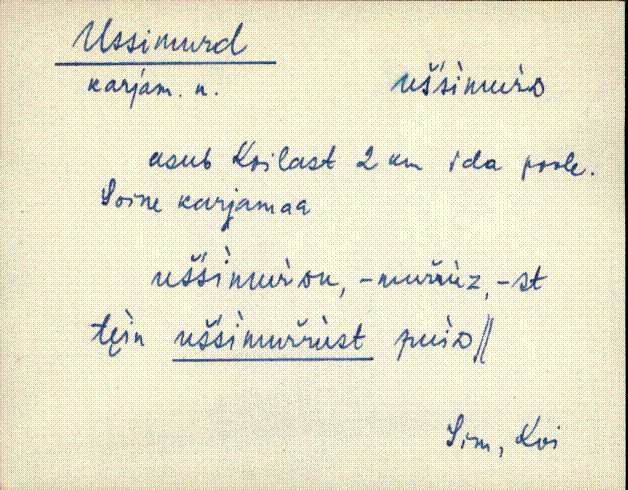 Ussimurd
karjam. n. uš̀šìmùrᴅ
asub Koilast 2 km ida poole.
Soine karjamaa
uš̀šìmùrᴅu, -mur̆rùz, -st
tęìn uš̀šìmur̆rùst puìᴅ//
Sim, Koi